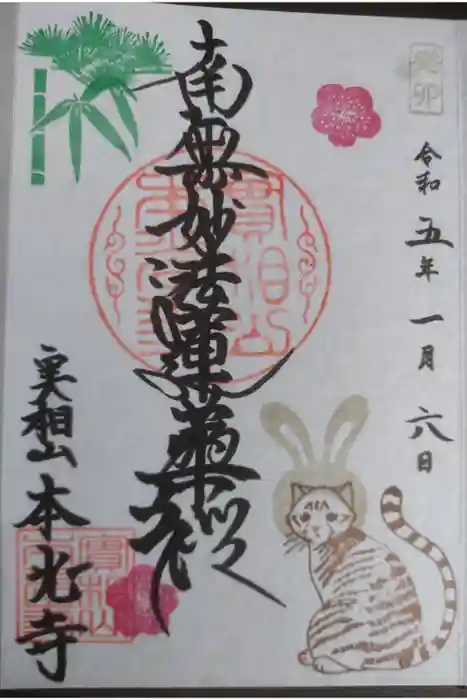 癸卯
令和五年一月六日
南無妙法蓮華経
実相山
本光寺